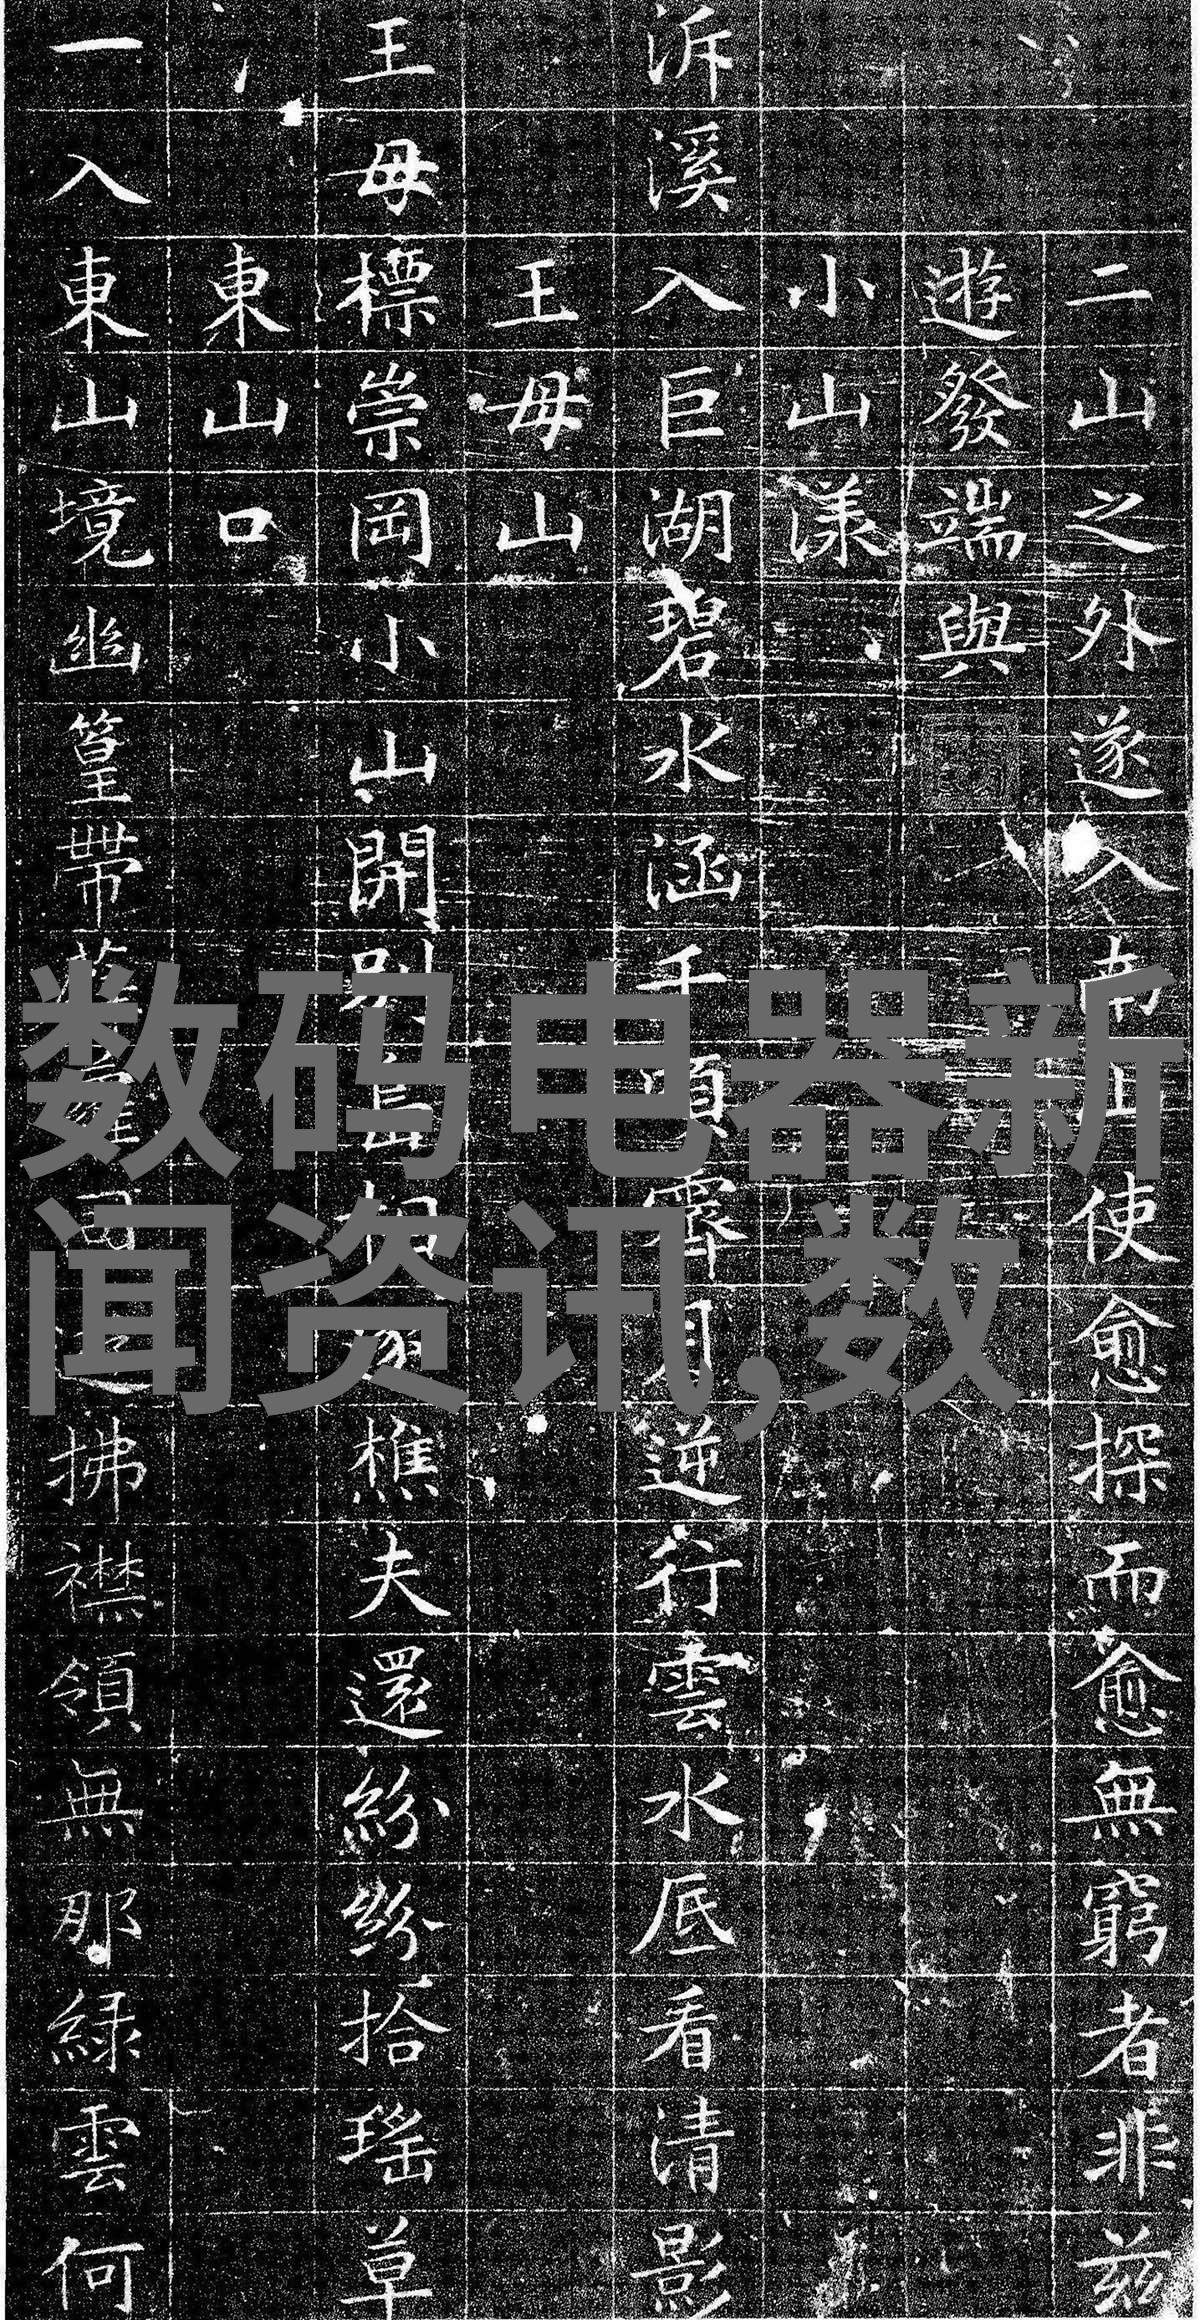 二山之外遂入南山使愈探而愈無窮者非茲
遊發端與
小山漾
泝溪入巨湖碧水涵千頃霽月逆行雲水底看清影
王母山
王母標崇岡小山開別島樵夫還紛紛拾瑤草
東山口
一入東山境幽篁帶拂襟領無那綠雲何
数码电器新
闻资讯,数